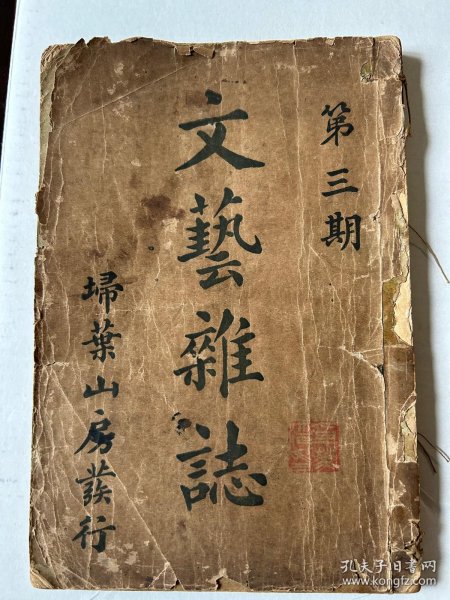 第三期
文藝雜誌
埽葉山房發行
孔夫子旧书网
kongfz.com